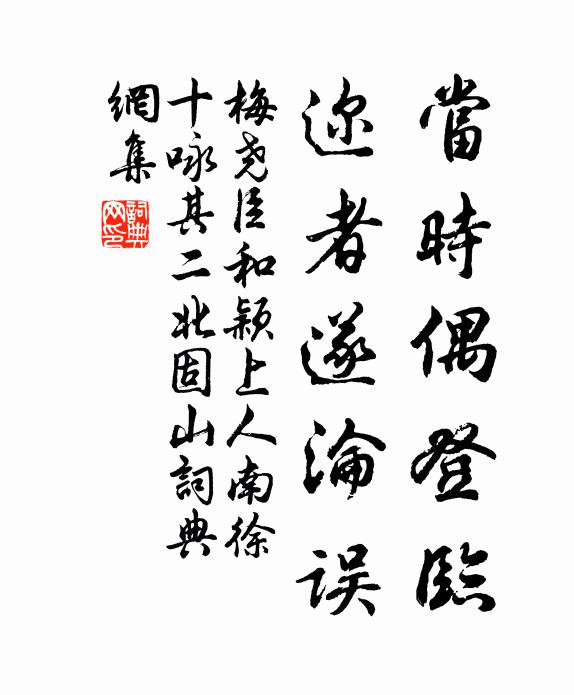 當時偶登臨
迩者遂淪误
梅尧臣和颖上人南徐
十咏其二北固山詞典
網集
詞典
网印